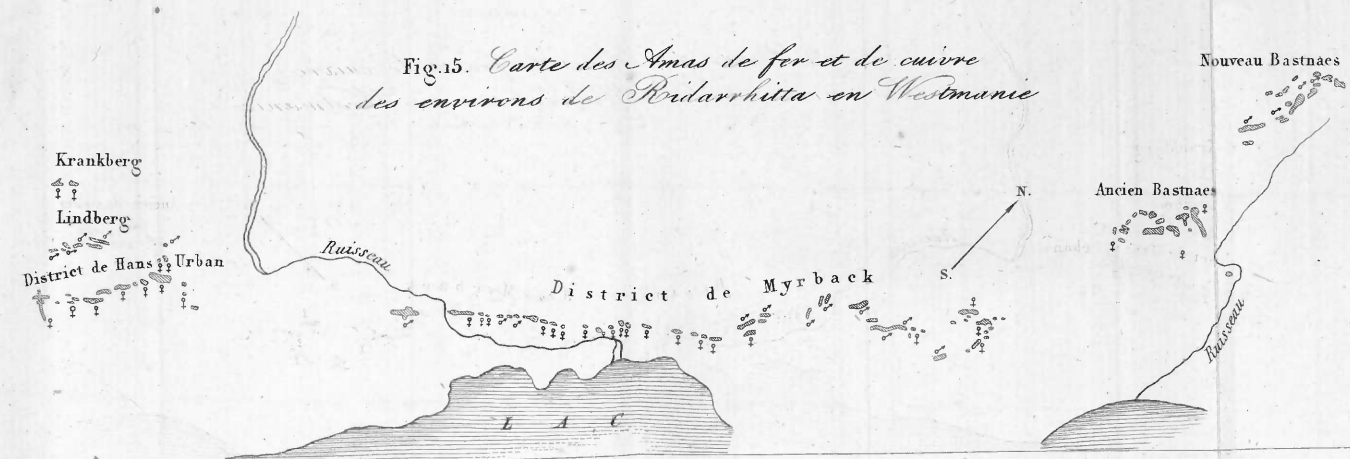 Fig.15. Carte des Amas de fer et de cuivre
des environs de Ridarrhitta en Westmanie
Nouveau Bastnaes
Krankberg
Lindberg
District de Hans Urban
Ruisseau
District de Myrback
N.
S.
Ancien Bastnaes
Ruisseau
LAC